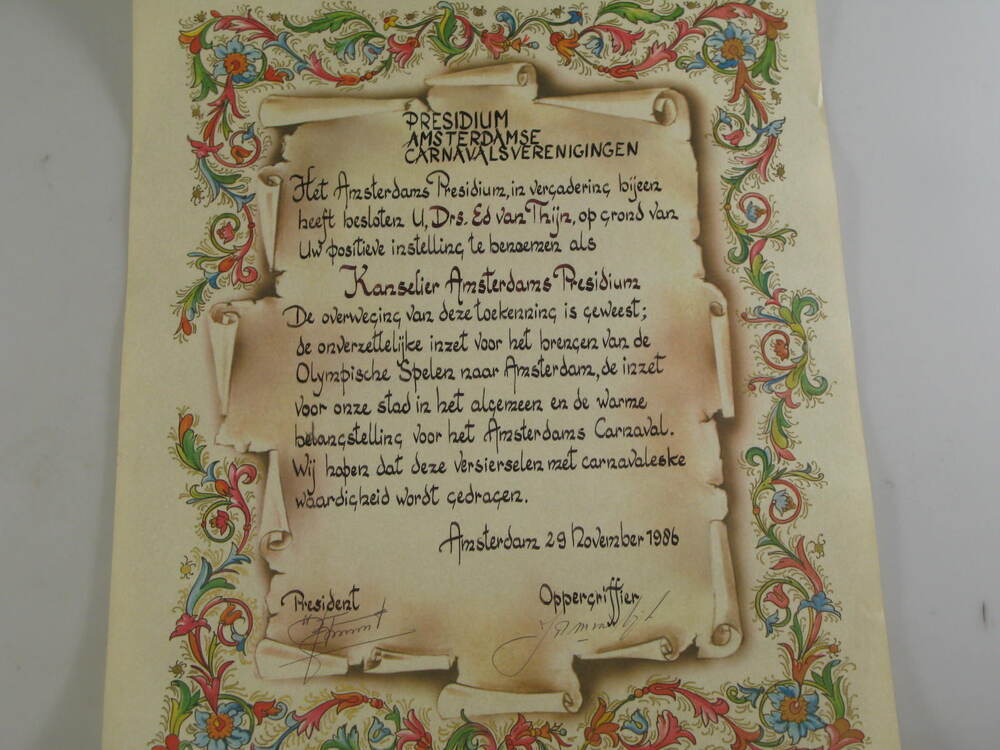 PRESIDIUM
AMSTERDAMSE
CARNAVALSVERENIGINGEN
Het Amsterdams Presidium, in vergadering bijeen
heeft besloten U, Drs. Ed van Thijn, op grond van
Uw positieve instelling te benoemen als
Kanselier Amsterdams Presidium
De overweging van deze toekenning is geweest;
de onverzettelijke inzet voor het brengen van de
Olympische Spelen naar Amsterdam, de inzet
voor onze stad in het algemeen en de warme
belangstelling voor het Amsterdams Carnaval.
Wij hopen dat deze versierselen met carnavaleske
waardigheid wordt gedragen.
Amsterdam 29 November 1986
President Oppergriffier